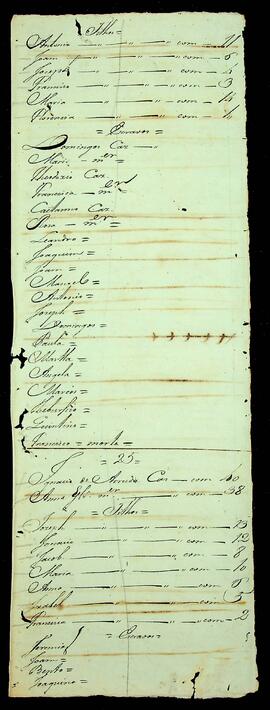 Filhos =
Antonio — " — com — 21
Joam — " — com — 6
Joseph — " — com — 4
Francisco — " — com — 3
Maria — " — com — 14
Florencia — " — com — 4
= Escravos =
Domingos Caz. — "
Maria — mer
Theodozio Caz.
Francisca — mer
Caetanno Caz.
Roza — mer
Leandro =
Joaquim =
Joam =
Manoel =
Antonio =
Joseph =
Domingos =
Paula =
Martha =
Angela =
Marcos =
Leventino =
Francisco = morto =
F — 25 —
Ignacio de Almeida Caz — com 40
Anna mer — com — 38
= Filhos =
Joseph — " — com — 13
Ignacio — " — com — 12
Jacob — " — com — 8
Maria — " — com — 10
Anna — " — com — 6
Izabel — " — com — 5
Francisca — " — com — 2
= Escravos =
Jeronimo
Joam =
Bento =
Joaquina =